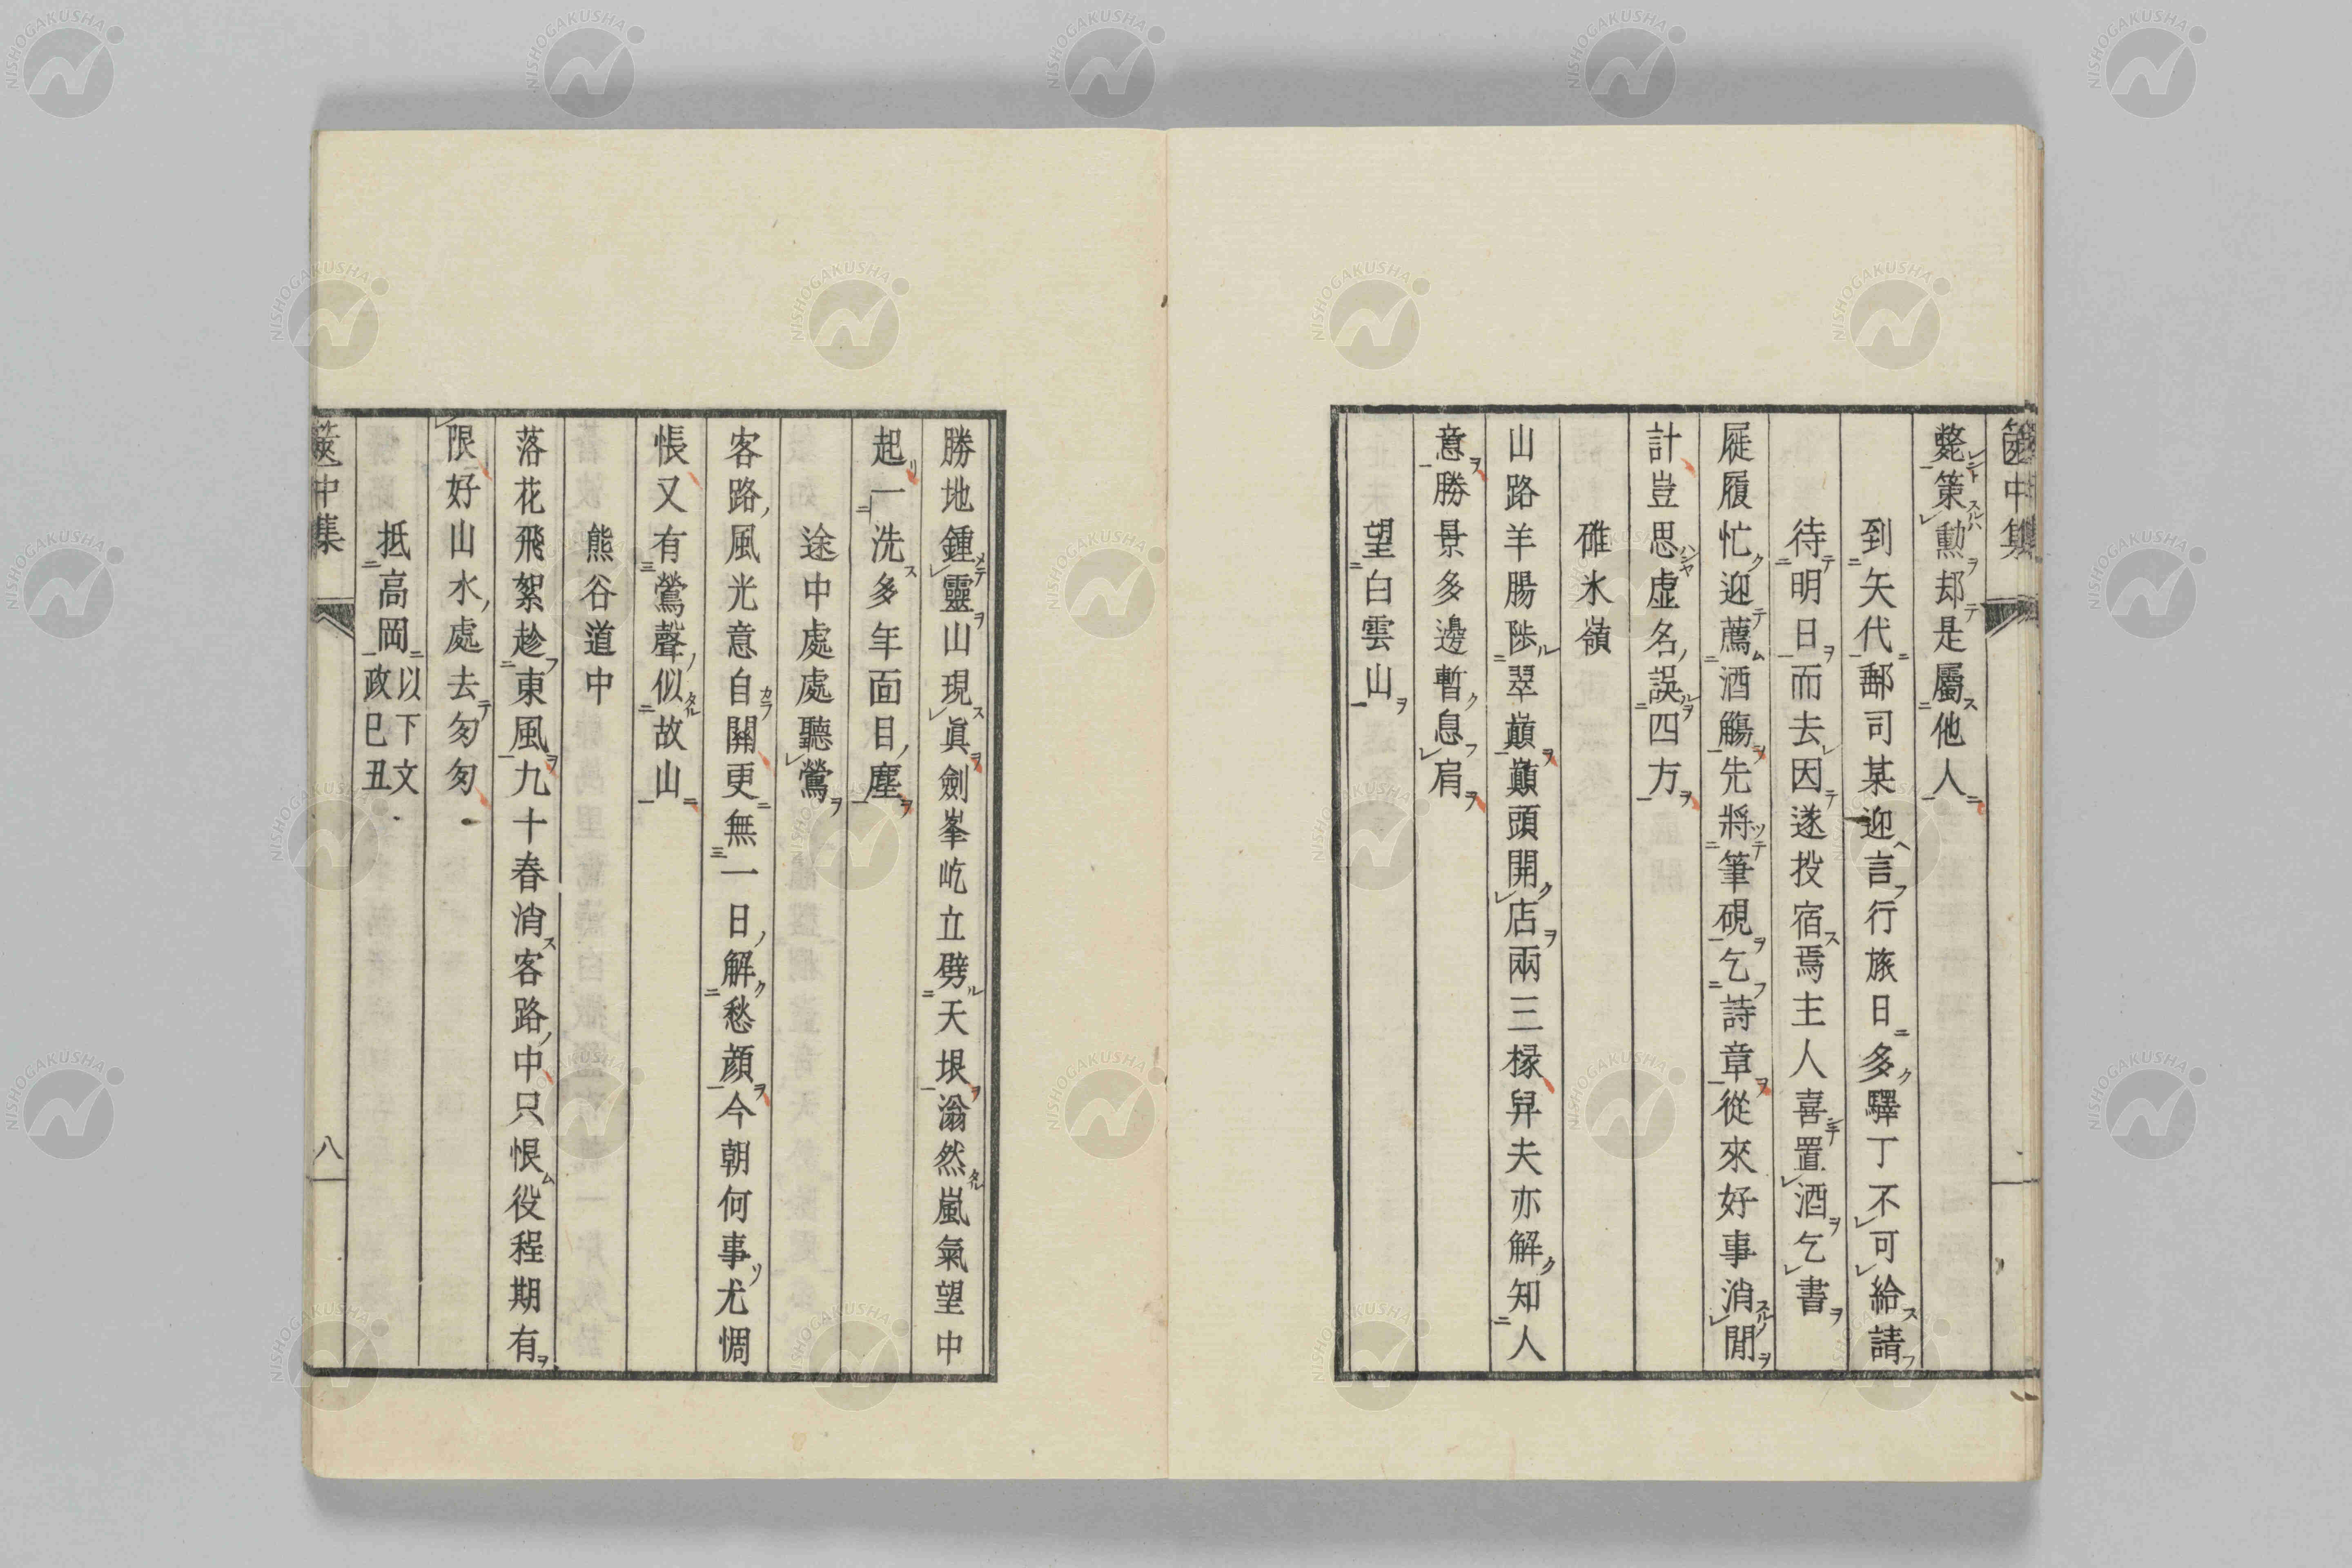 篋中集
斃策勳却是屬他人
到矢代郵司某迎言行旅日多驛丁不可給請
待明日而去因遂投宿焉主人喜置酒乞書
屣履忙迎薦酒觴先將筆硯乞詩章從來好事消閒
計豈思虛名誤四方
碓氷嶺
山路羊腸陟翠巓巓頭開店兩三椽舁夫亦解知人
意勝景多邊暫息肩
望白雲山
勝地鍾靈山現眞劍峯屹立劈天垠滃然嵐氣望中
起一洗多年面目塵
途中處處聽鶯
客路風光意自關更無一日解愁顔今朝何事尤惆
悵又有鶯聲似故山
熊谷道中
落花飛絮趁東風九十春消客路中只恨役程期有
限好山水處去匆匆
抵高岡以下文政己丑
篋中集
八